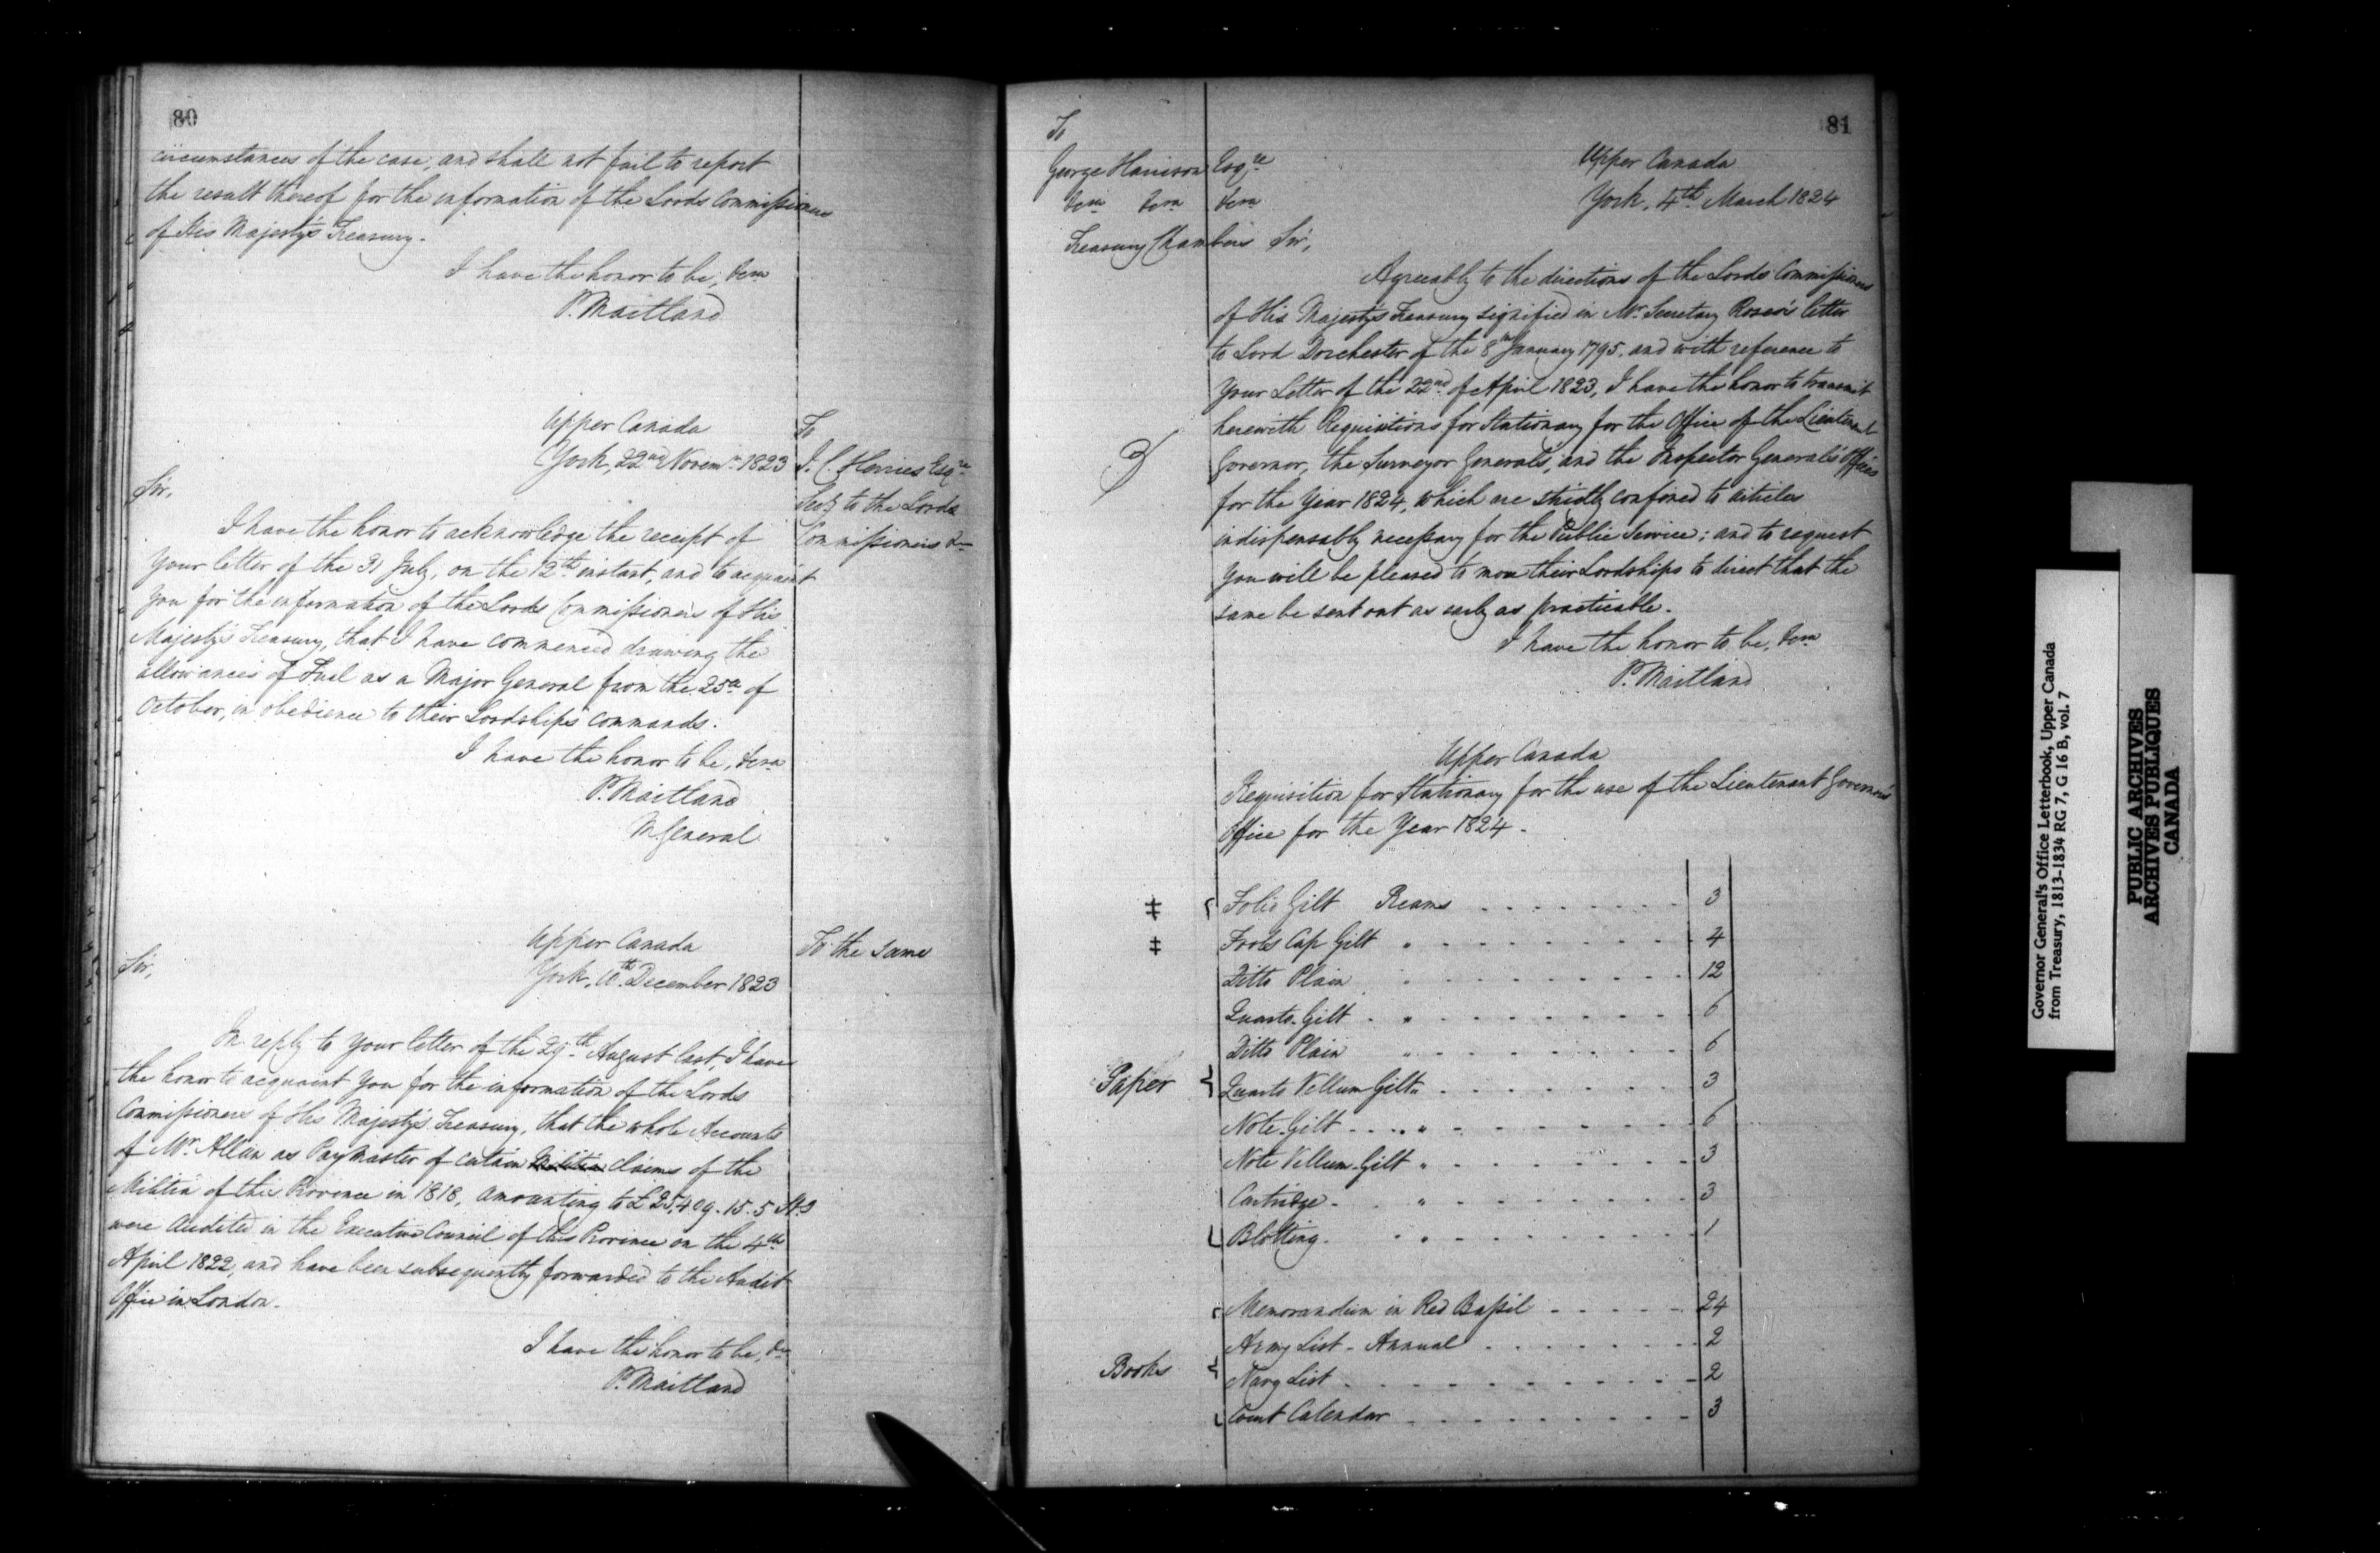 80
circumstances of the case, and shall not fail to report
the result thereof for the information of the Lords Commissioners
of His Majesty's Treasury.
I have the honor to be, &ca
P. Maitland
Upper Canada
York, 22nd Novemr 1823
To
J. C. Herries Esqre
Secy to the Lords
Commissioners &c
Sir,
I have the honor to acknowledge the receipt of
Your letter of the 31 July, on the 12th instant, and to acquaint
You for the information of the Lords Commissioners of His
Majesty's Treasury, that I have commenced drawing the
allowances of Fuel as a Major General from the 25th of
October, in obedience to their Lordships commands.
I have the honor to be, &ca
P. Maitland
M. General
Upper Canada
York, 10th December 1823
To the same
Sir,
In reply to Your letter of the 29th August last, I have
the honor to acquaint You for the information of the Lords
Commissioners of His Majesty's Treasury, that the whole Accounts
of Mr Allan as Paymaster of certain Militia claims of the
Militia of this Province in 1818, amounting to £25,409.15.5 Stg
were Audited in the Executive Council of this Province on the 4th
April 1822, and have been subsequently forwarded to the Audit
Office in London.
I have the honor to be, &c
P. Maitland
81
To
George Harrison Esqre
&ca &ca &ca
Treasury Chambers
Upper Canada
York, 4th March 1824
Sir,
Agreeably to the directions of the Lords Commissioners
of His Majesty's Treasury signified in Mr Secretary Rose's letter
to Lord Dorchester of the 8th January 1795, and with reference to
Your Letter of the 22nd of April 1823, I have the honor to transmit
herewith Requisitions for Stationary for the Office of the Lieutenant
Governor, the Surveyor General's, and the Inspector General's Offices
for the Year 1824, which are strictly confined to articles
indispensably necessary for the Public Service; and to request
You will be pleased to move their Lordships to direct that the
same be sent out as early as practicable.
I have the honor to be, &ca
P. Maitland
Upper Canada
Requisition for Stationary for the use of the Lieutenant Governor's
Office for the Year 1824.
‡ Folio Gilt Reams 3
‡ Fools Cap Gilt " 4
Ditto Plain " 12
Quarto Gilt " 6
Ditto Plain " 6
Paper { Quarto Vellum Gilt " 3
Note Gilt " 6
Note Vellum Gilt " 3
Cartridge " 3
Blotting " 1
Memorandum in Red Bassil 24
Army List - Annual 2
Books { Navy List 2
Court Calendar 3
Governor General's Office Letterbook, Upper Canada
from Treasury, 1813-1834 RG 7, G 16 B, vol. 7
PUBLIC ARCHIVES
ARCHIVES PUBLIQUES
CANADA